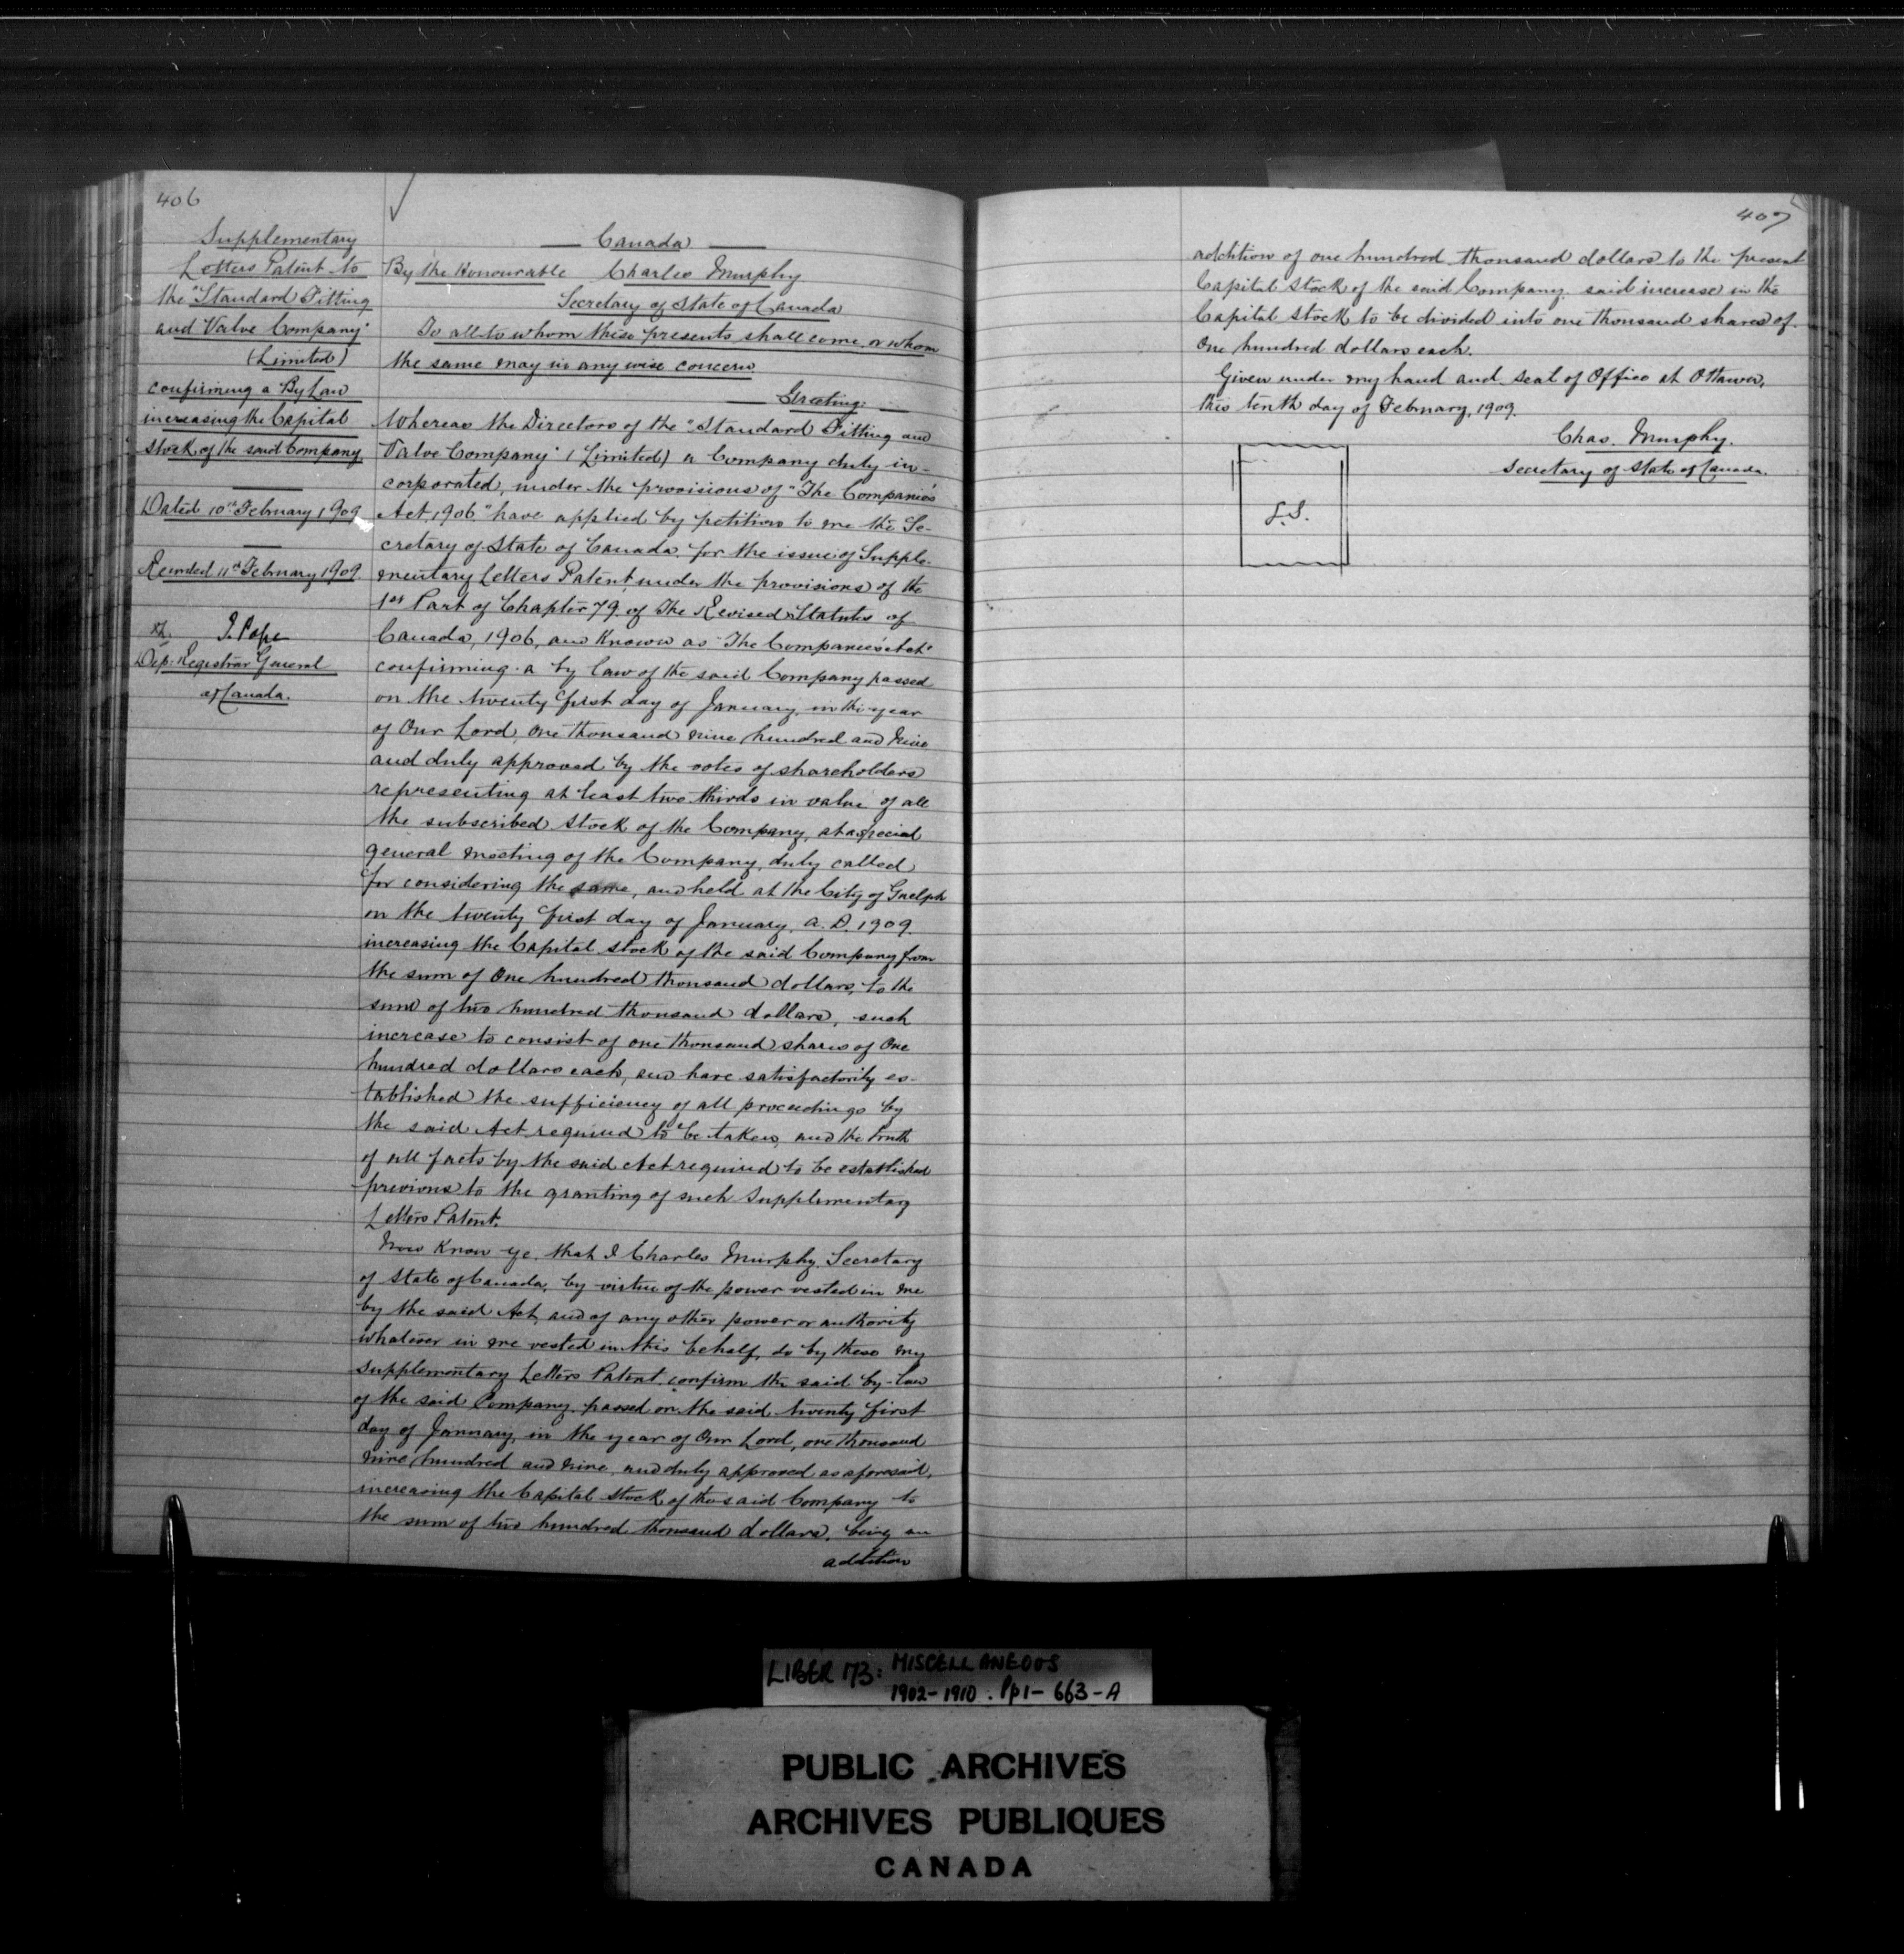 406
Supplementary
Letters Patent to
the "Standard Fitting
and Valve Company"
(Limited)
confirming a By Law
increasing the Capital
stock of the said Company
Dated 10th February 1909
Recorded 11th February 1909.
J. Pope
Dep: Registrar General
of Canada.
Canada
By the Honourable Charles Murphy
Secretary of State of Canada
To all to whom these presents shall come or whom
the same may in any wise concern.
Greeting:
Whereas the Directors of the "Standard Fitting and
Valve Company" (Limited) a Company duly in-
corporated, under the provisions of "The Companies
Act, 1906," have applied by petition to me the Se-
cretary of State of Canada for the issue of Supple-
mentary Letters Patent under the provisions of the
1st Part of Chapter 79 of The Revised Statutes of
Canada, 1906, and Known as "The Companies Act"
confirming a by law of the said Company passed
on the twenty first day of January, in the year
of Our Lord, One thousand nine hundred and Nine
and duly approved by the votes of shareholders
representing at least two thirds in value of all
the subscribed stock of the Company, at a special
general meeting of the Company, duly called
for considering the same, and held at the City of Guelph
on the twenty first day of January, A. D. 1909.
increasing the Capital stock of the said Company from
the sum of One hundred thousand dollars, to the
sum of two hundred thousand dollars, such
increase to consist of one thousand shares of One
hundred dollars each, and have satisfactorily es-
tablished the sufficiency of all proceedings by
the said Act required to be taken, and the truth
of all facts by the said Act required to be established
previous to the granting of such Supplementary
Letters Patent.
Now Know ye, that I Charles Murphy, Secretary
of State of Canada, by virtue of the power vested in me
by the said Act, and of any other power or authority
whatever in me vested in this behalf, do by these my
supplementary Letters Patent confirm the said by-law
of the said Company passed on the said twenty first
day of January, in the year of Our Lord, one thousand
Nine hundred and nine, and duly approved as aforesaid,
increasing the Capital stock of the said Company to
the sum of two hundred thousand dollars, being an
addition
407
addition of one hundred thousand dollars to the present
Capital Stock of the said Company, said increase in the
Capital stock to be divided into one thousand shares of
One hundred dollars each.
Given under my hand and seal of Office at Ottawa,
this tenth day of February, 1909.
Chas. Murphy.
Secretary of State of Canada.
L.S.
LIBER 173: MISCELLANEOUS
1902-1910. Pp1-663-A
PUBLIC ARCHIVES
ARCHIVES PUBLIQUES
CANADA